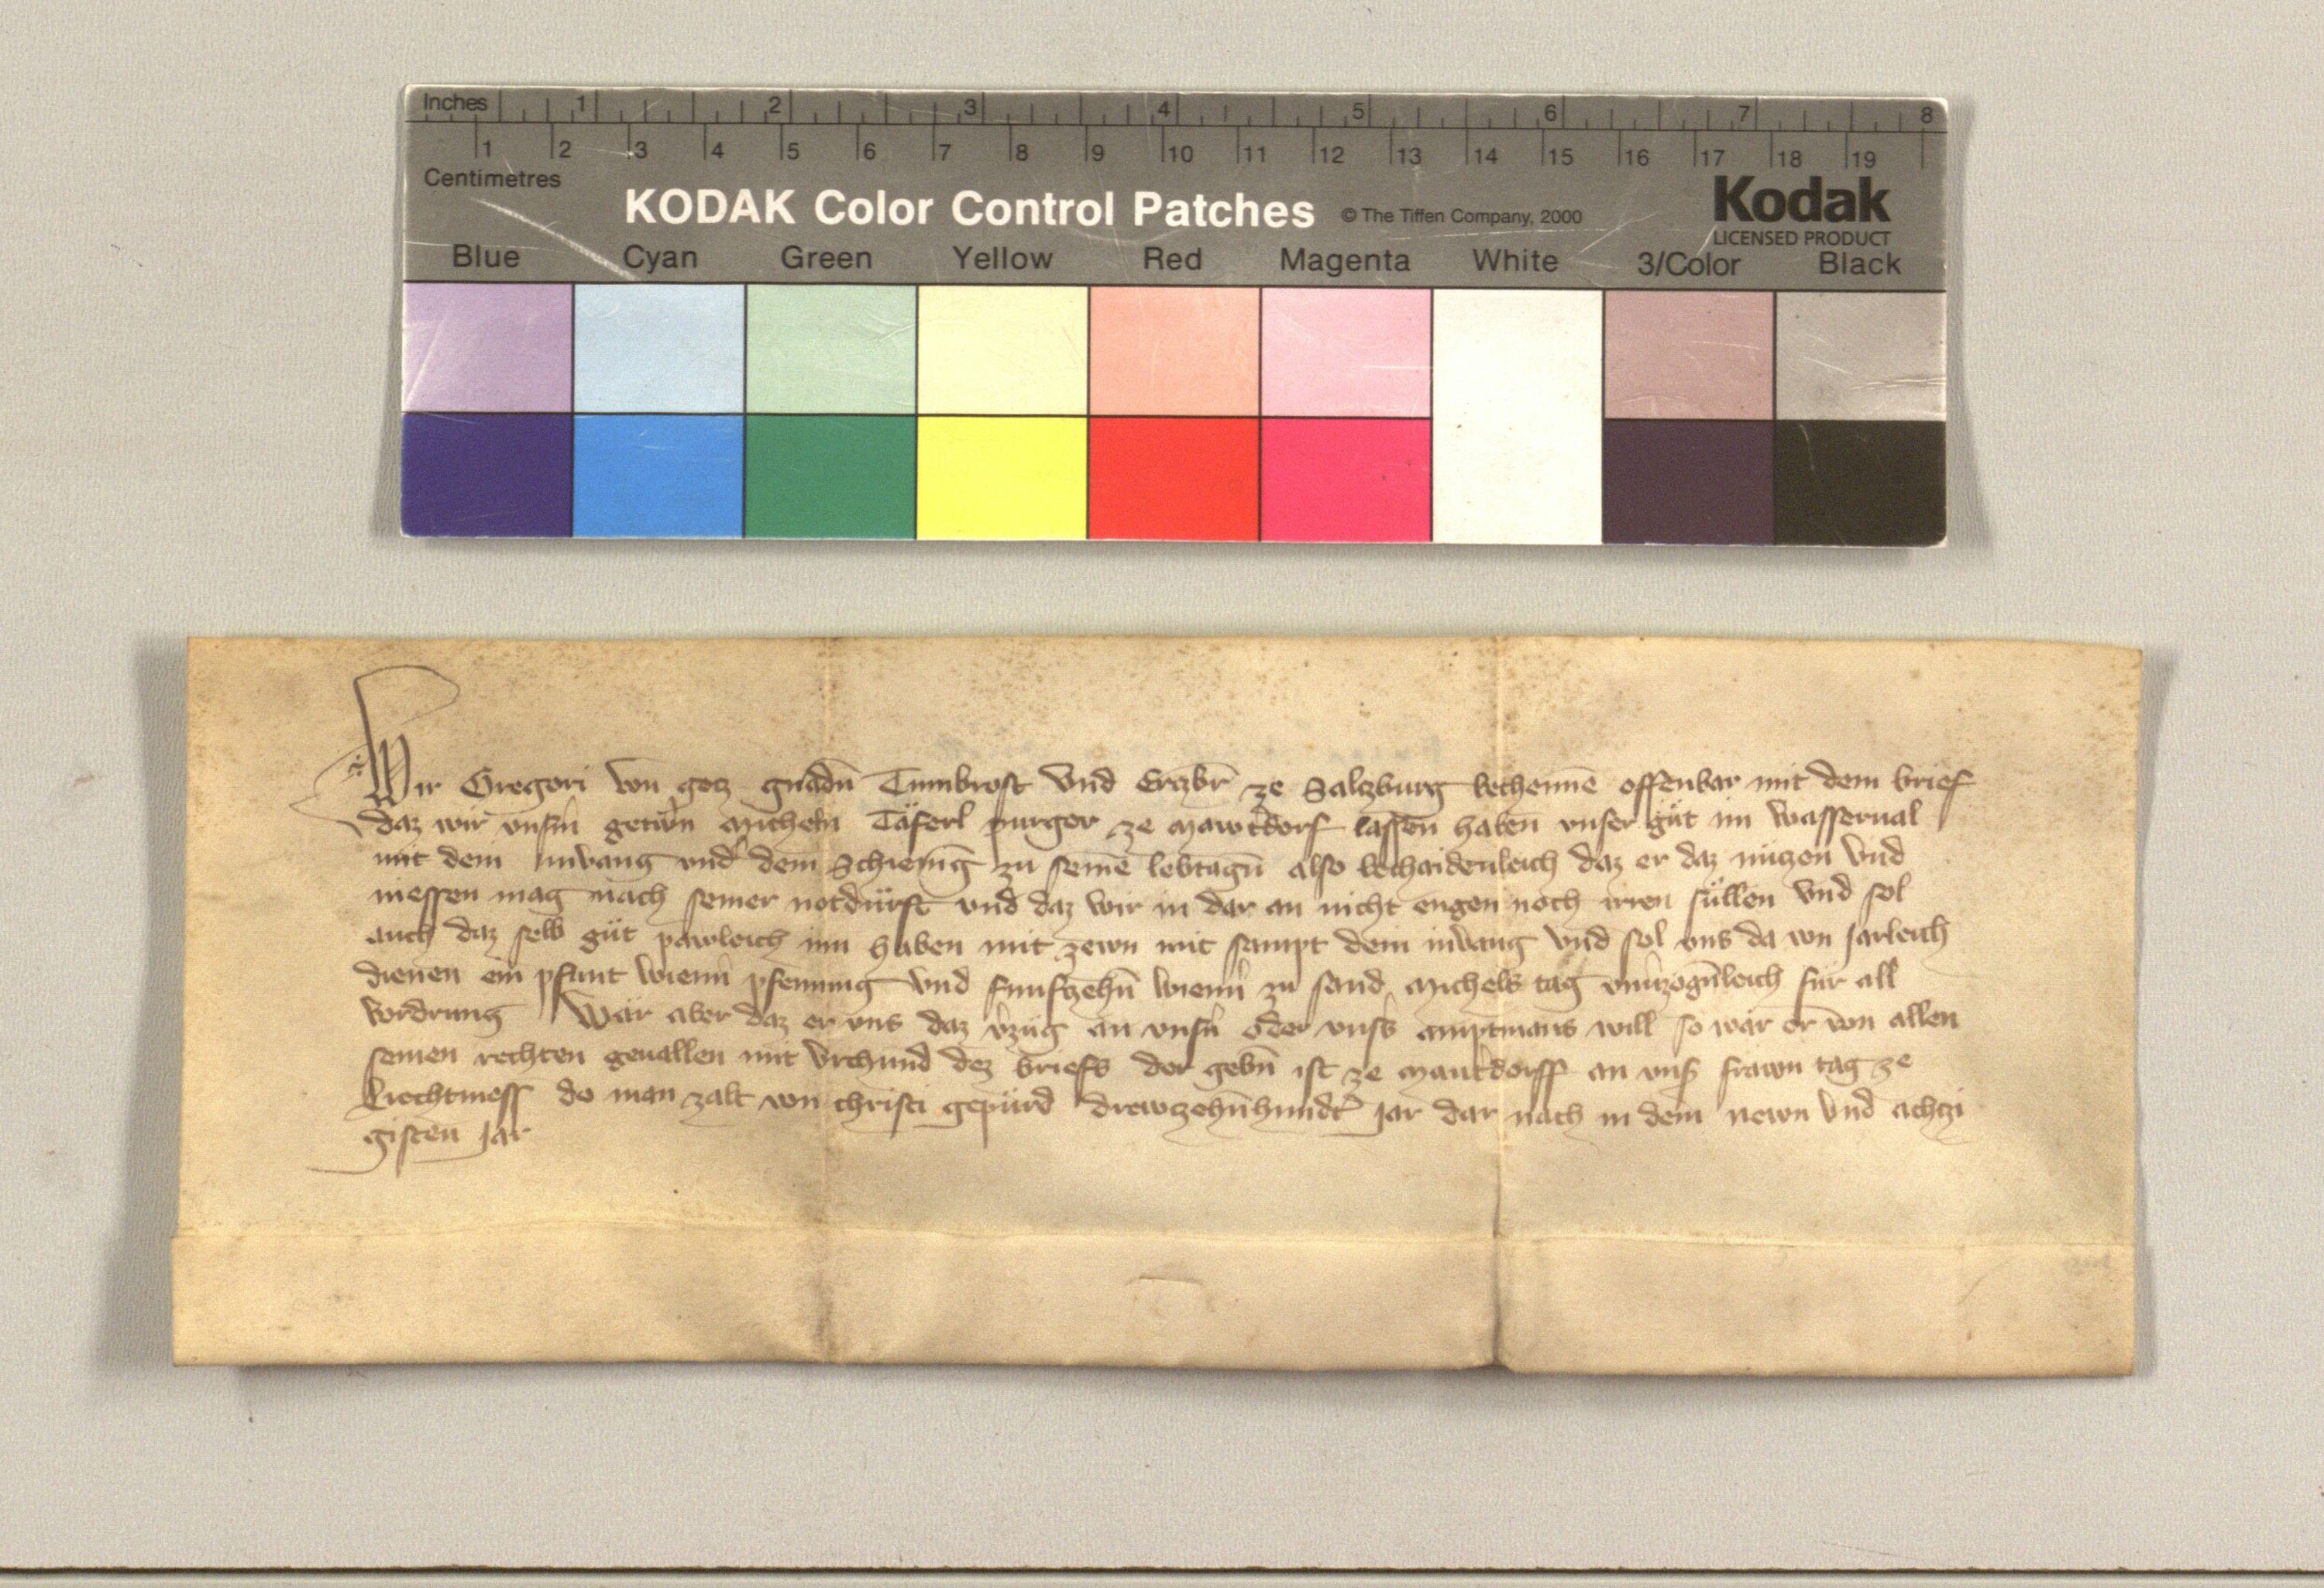 Inches 1 2 3 4 5 6 7 8
1 2 3 4 5 6 7 8 9 10 11 12 13 14 15 16 17 18 19
Centimetres
KODAK Color Control Patches © The Tiffen Company, 2000 Kodak
LICENSED PRODUCT
Blue Cyan Green Yellow Red Magenta White 3/Color Black
Wir Gregori von gotz gnadn̄ Tumbrost vnd Erczbr̄ ze Salczburg bechennē offenbar mit dem brief
daz wir vnsīn getrw̄n Micheln Täferl purger ze Mawtdorf lassen haben vnser güt im Wasserual
mit dem invang vnd dem Schiening zu seinē lebtagn̄ also beschaidenleich daz er daz nüczen vnd
niessen mag nach seiner notdürft vnd daz wir in dar an nicht engen noch irren süllen vnd sol
auch daz selb güt pawleich inn haben mit zewn mit sampt dem invang vnd sol vns da von Jarleich
dienen ein pfunt wienn̄ pfenning vnd funfzehn̄ wienn̄ zu sand Michels tag vnu̕zogn̄leich für all
vordrung Wär aber daz er vns daz v̕zug an vnsn̄ oder vnss amptmans will so wär er von allen
seinen rechten geuallen mit vrchund dez briefs der gebn̄ ist ze Mautdorff an vnss frawn tag ze
Liechtmess do man zalt von christi gepürd drewzehn̄hundt̕ Jar dar nach in dem newn vnd achczi
gisten Jar